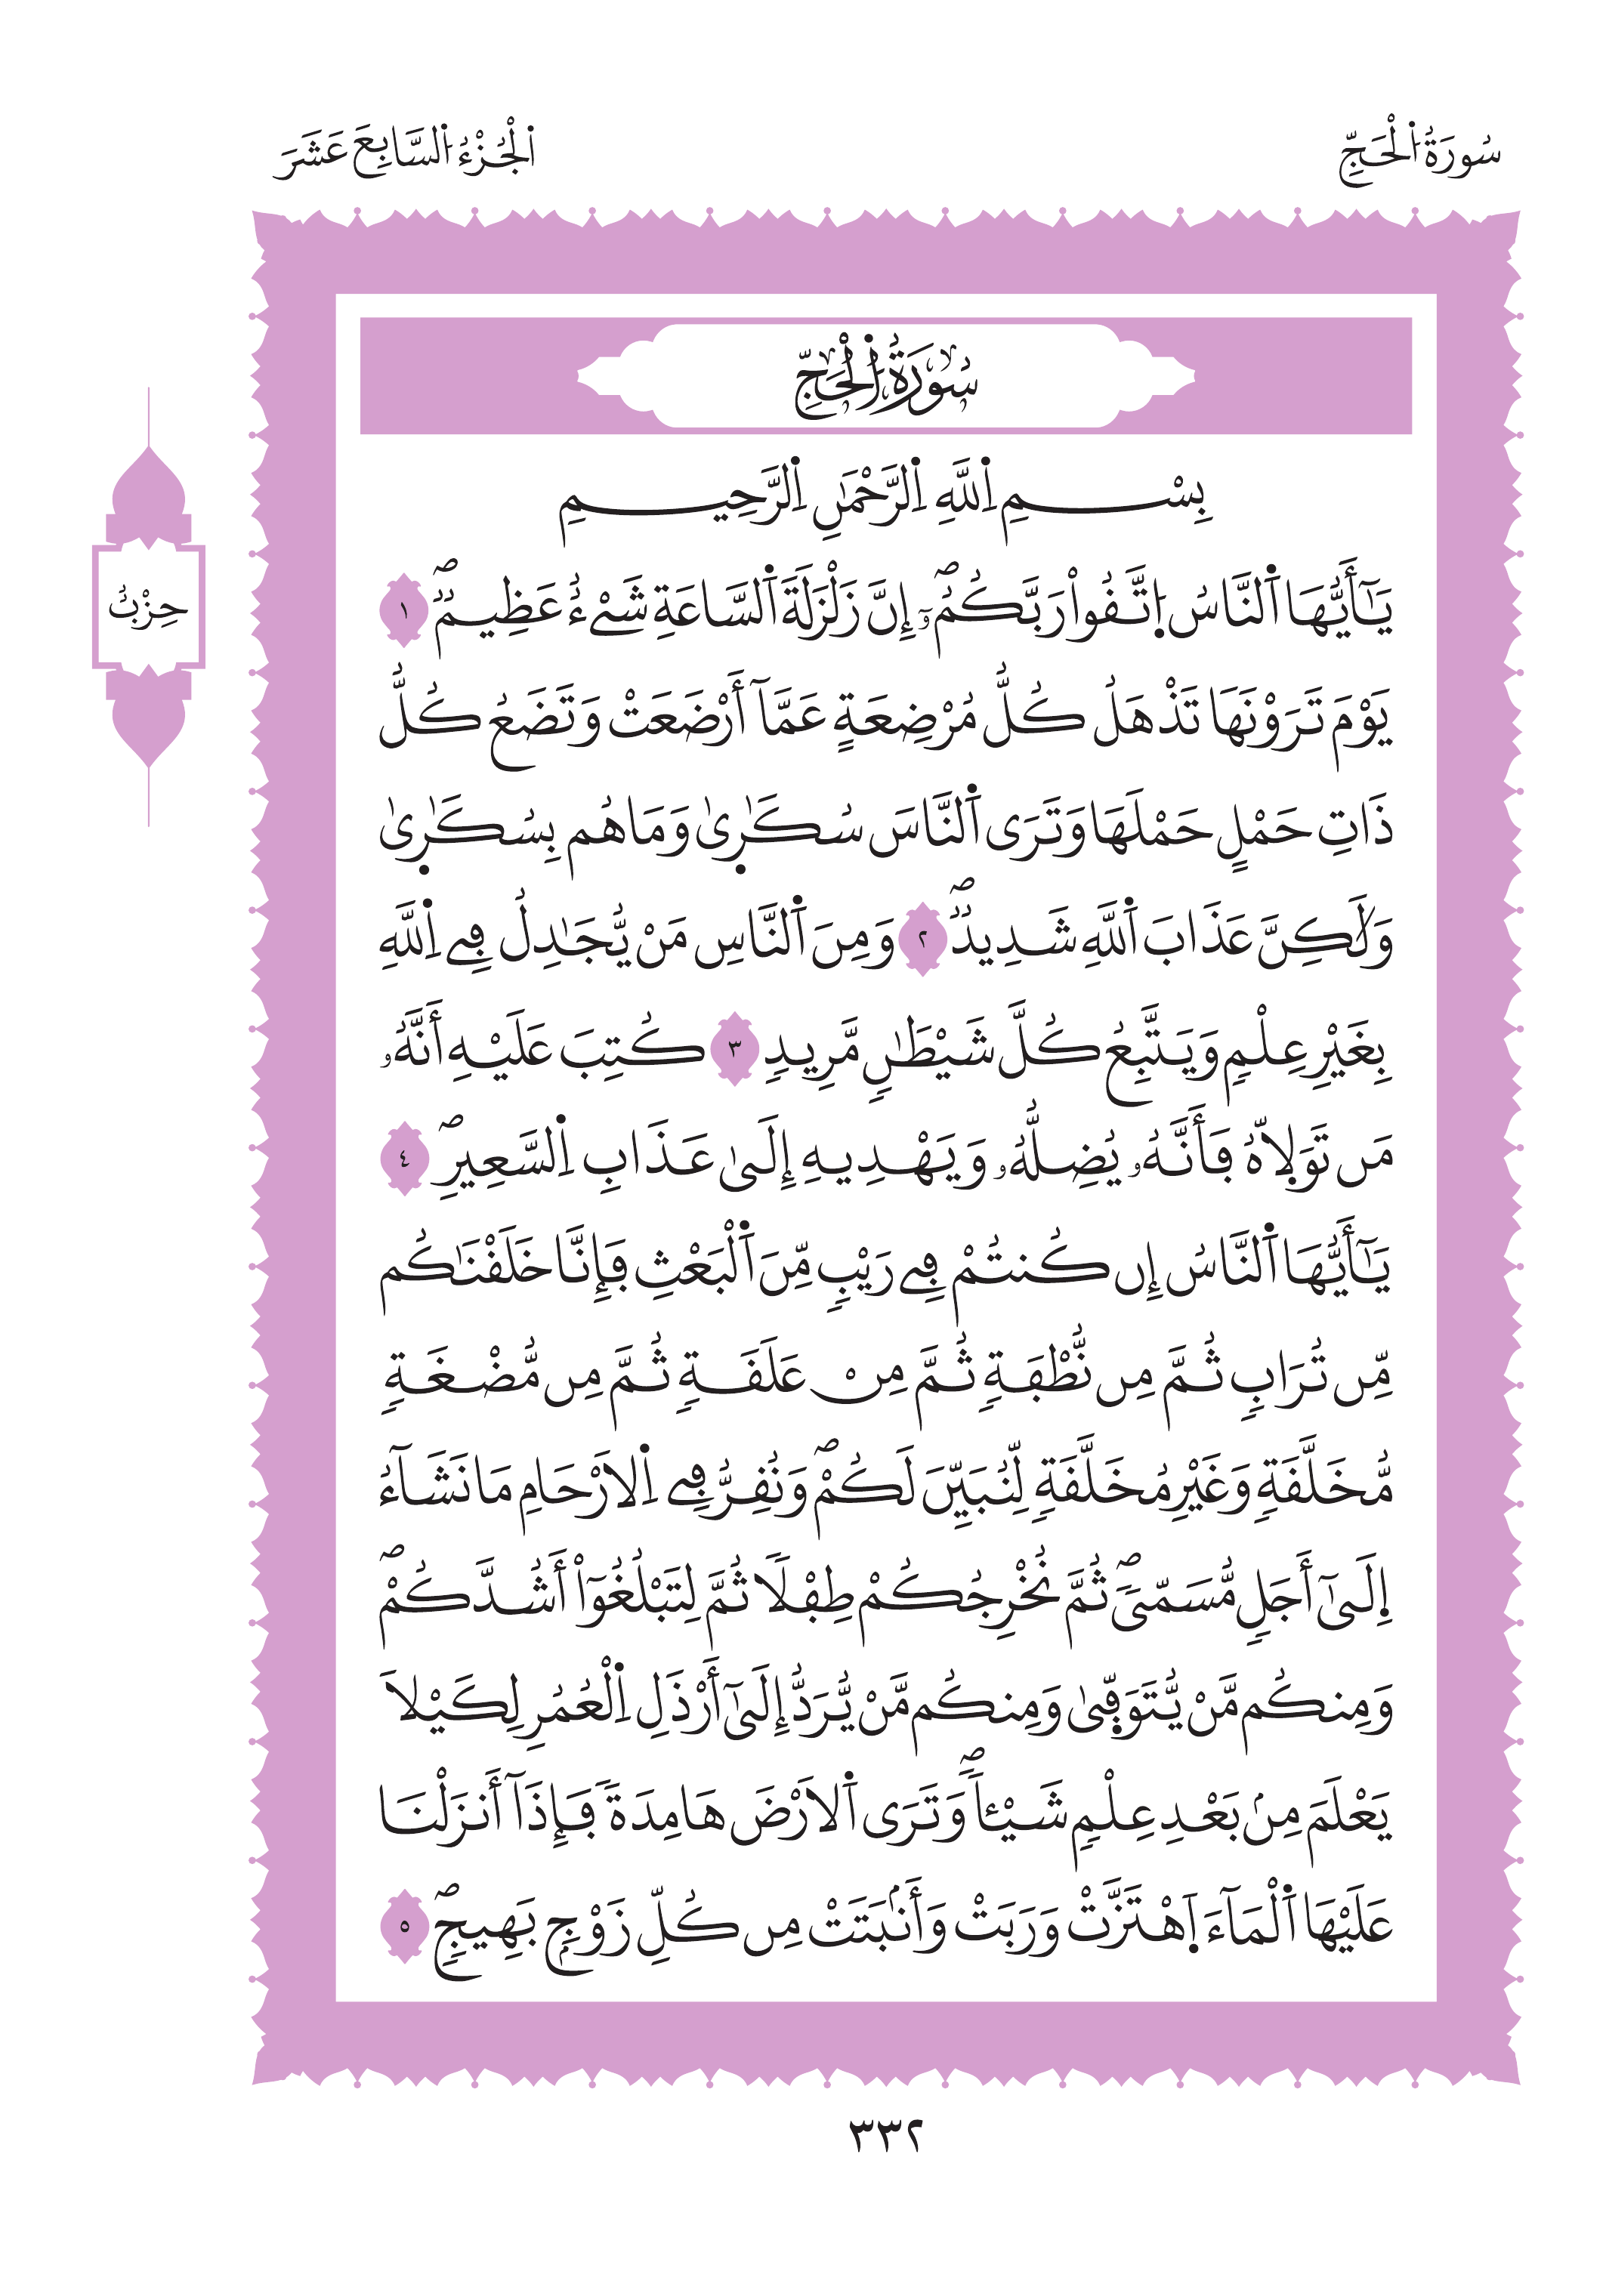 سُورَةُ اُ۬لْحَجِّ
اَ۬لْجُزْءُ اُ۬لسَّابِعَ عَشَرَ
سُورَةُ اُ۬لْحَجِّ
بِسْمِ اِ۬للَّهِ اِ۬لرَّحْمَٰنِ اِ۬لرَّحِيمِ
يَٰٓأَيُّهَا اَ۬لنَّاسُ اُ۪تَّقُواْ رَبَّكُمُۥٓۖ إِنَّ زَلْزَلَةَ اَ۬لسَّاعَةِ شَےْءٌ عَظِيمٌۖ ١
يَوْمَ تَرَوْنَهَا تَذْهَلُ كُلُّ مُرْضِعَةٍ عَمَّآ أَرْضَعَتْ وَتَضَعُ كُلُّ
ذَاتِ حَمْلٍ حَمْلَهَا وَتَرَى اَ۬لنَّاسَ سُكَٰر۪ىٰ وَمَا هُم بِسُكَٰر۪ىٰ
وَلَٰكِنَّ عَذَابَ اَ۬للَّهِ شَدِيدٌۖ ٢ وَمِنَ اَ۬لنَّاسِ مَنْ يُّجَٰدِلُ فِے اِ۬للَّهِ
بِغَيْرِ عِلْمٍ وَيَتَّبِعُ كُلَّ شَيْطَٰنٍ مَّرِيدٍ ٣ كُتِبَ عَلَيْهِ أَنَّهُۥ
مَن تَوَلّ۪اهُ فَأَنَّهُۥ يُضِلُّهُۥ وَيَهْدِيهِ إِلَىٰ عَذَابِ اِ۬لسَّعِيرِۖ ٤
يَٰٓأَيُّهَا اَ۬لنَّاسُ إِن كُنتُمْ فِے رَيْبٍ مِّنَ اَ۬لْبَعْثِ فَإِنَّا خَلَقْنَٰكُم
مِّن تُرَابٍ ثُمَّ مِن نُّطْفَةٍ ثُمَّ مِنْ عَلَقَةٍ ثُمَّ مِن مُّضْغَةٍ
مُّخَلَّقَةٍ وَغَيْرِ مُخَلَّقَةٍ لِّنُبَيِّنَ لَكُمْۖ وَنُقِرُّ فِے اِ۬لَارْحَامِ مَا نَشَآءُ
ا۪لَىٰٓ أَجَلٍ مُّسَمّيٗۖ ثُمَّ نُخْرِجُكُمْ طِفْلاٗ ثُمَّ لِتَبْلُغُوٓاْ أَشُدَّكُمْۖ
وَمِنكُم مَّنْ يُّتَوَفّ۪ىٰ وَمِنكُم مَّنْ يُّرَدُّ إِلَىٰٓ أَرْذَلِ اِ۬لْعُمُرِ لِكَيْلَا
يَعْلَمَ مِنۢ بَعْدِ عِلْمٍ شَيْـٔاٗۖ وَتَرَى اَ۬لَارْضَ هَامِدَةٗ فَإِذَآ أَنزَلْنَا
عَلَيْهَا اَ۬لْمَآءَ اَ۪هْتَزَّتْ وَرَبَتْ وَأَنۢبَتَتْ مِن كُلِّ زَوْجٍۢ بَهِيجٍۖ ٥
حِزْبُ
٣٣٢